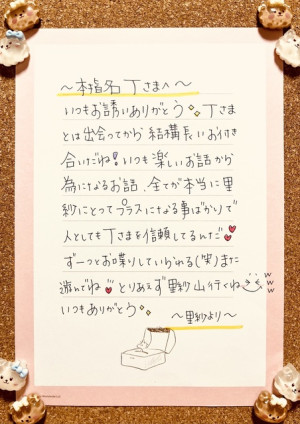 ～本指名Tさまへ～
いつもお誘いありがとう Tさま
とは出会ってから結構長いお付き
合いだね!いつも楽しいお話から
為になるお話、全てが本当に里
紗にとってプラスになる事ばかりで
人としてもTさまを信頼してるんだ
ずーっとお喋りしていられる(笑)また
遊んでね とりあえず里紗山行くね
www
いつもありがとう
～里紗より～